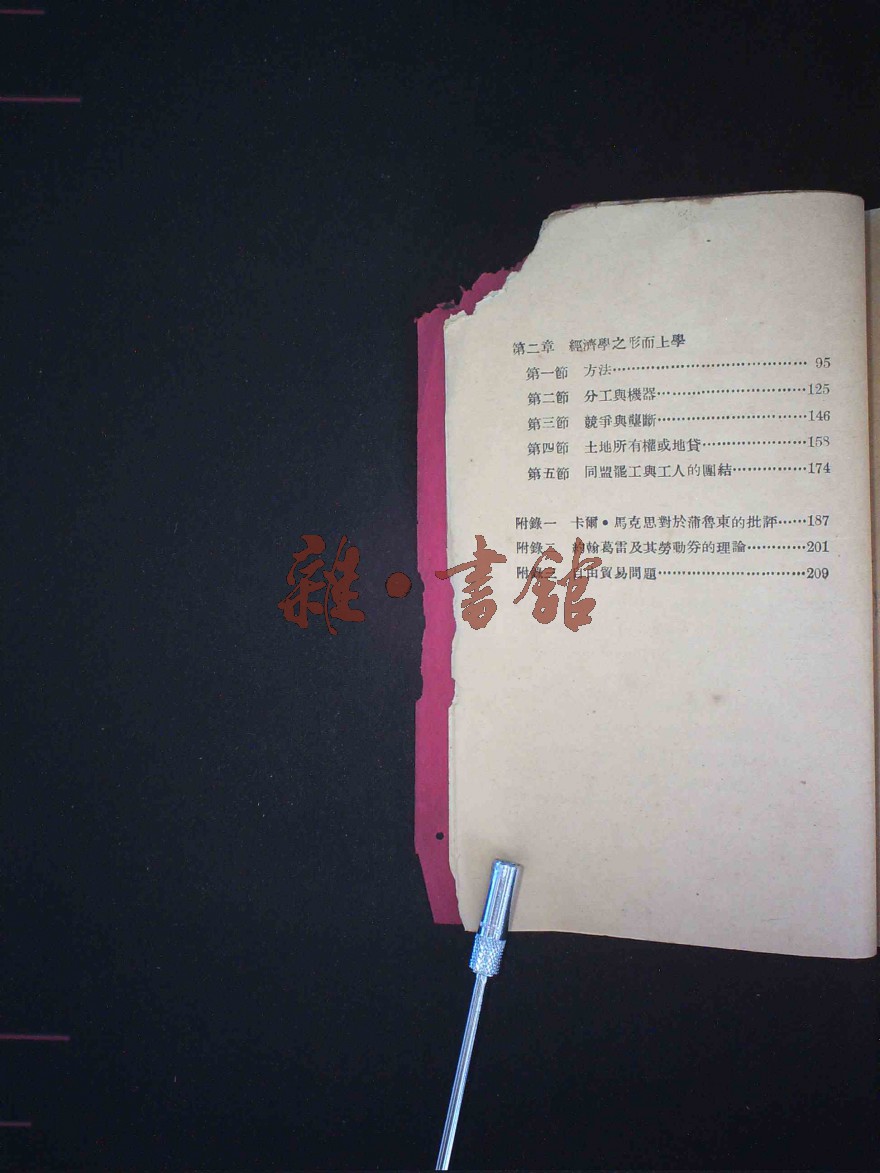 第二章 經濟學之形而上學
第一節 方法……………………………… 95
第二節 分工與機器………………………125
第三節 競爭與壟斷………………………146
第四節 土地所有權或地貸………………158
第五節 同盟罷工與工人的團結…………174
附錄一 卡爾•馬克思對於蒲魯東的批評……187
附錄二 約翰葛雷及其勞動券的理論…………201
附錄三 自由貿易問題…………………………209
雜•書館